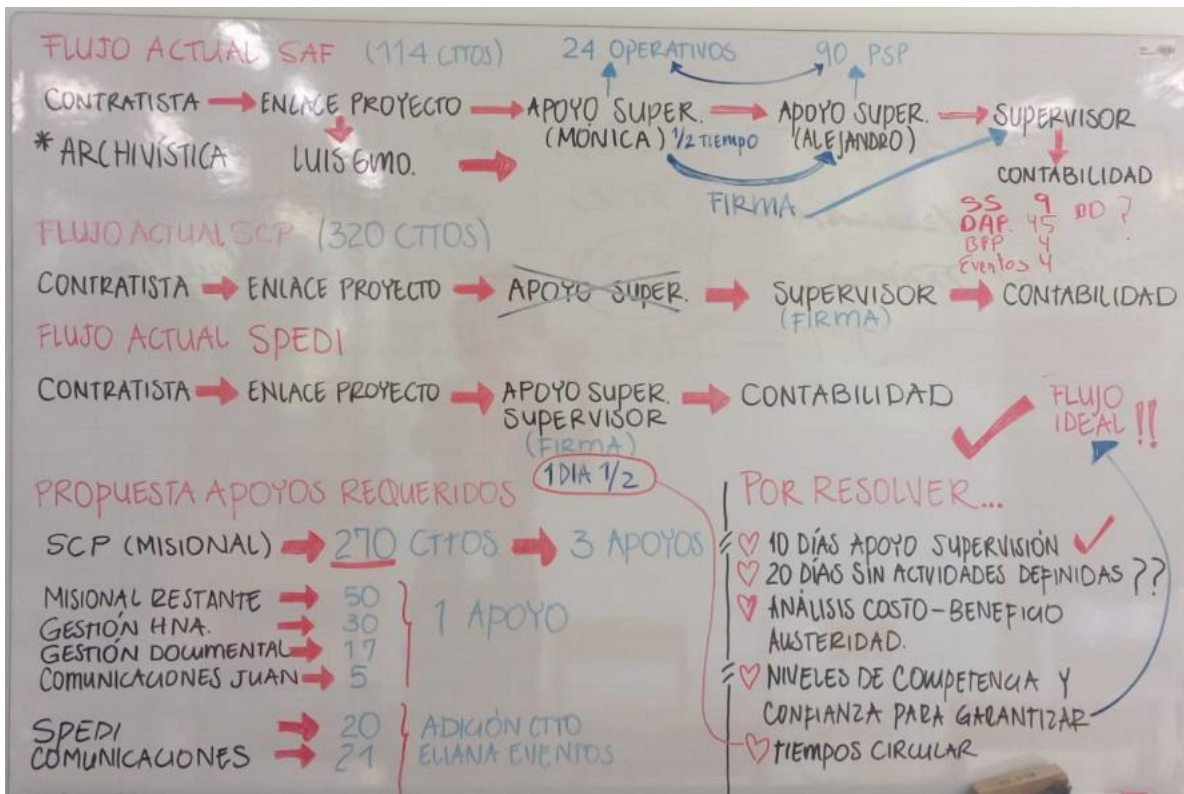 FLUJO ACTUAL SAF (114 CTTOS) 24 OPERATIVOS 90 PSP
CONTRATISTA → ENLACE PROYECTO → APOYO SUPER. → APOYO SUPER. → SUPERVISOR
(MÓNICA) 1/2 TIEMPO (ALEJANDRO)
* ARCHIVÍSTICA LUIS GMO. →
CONTABILIDAD
FIRMA
SS 9
DAP. 45 BD ?
BPP 4
Eventos 4
FLUJO ACTUAL SCP (320 CTTOS)
CONTRATISTA → ENLACE PROYECTO → APOYO SUPER. → SUPERVISOR → CONTABILIDAD
(FIRMA)
FLUJO ACTUAL SPEDI
CONTRATISTA → ENLACE PROYECTO → APOYO SUPER. → CONTABILIDAD
SUPERVISOR
(FIRMA)
1 DIA 1/2
FLUJO
IDEAL !!
PROPUESTA APOYOS REQUERIDOS
SCP (MISIONAL) → 270 CTTOS → 3 APOYOS
MISIONAL RESTANTE → 50
GESTIÓN HNA. → 30
GESTIÓN DOCUMENTAL → 17
COMUNICACIONES JUAN → 5
1 APOYO
SPEDI → 20
COMUNICACIONES → 21
ADICIÓN CTTO
ELIANA EVENTOS
POR RESOLVER...
♡ 10 DÍAS APOYO SUPERVISIÓN ✓
♡ 20 DÍAS SIN ACTVIDADES DEFINIDAS ??
♡ ANÁLISIS COSTO-BENEFICIO
AUSTERIDAD.
♡ NIVELES DE COMPETENCIA Y
CONFIANZA PARA GARANTIZAR
♡ TIEMPOS CIRCULAR